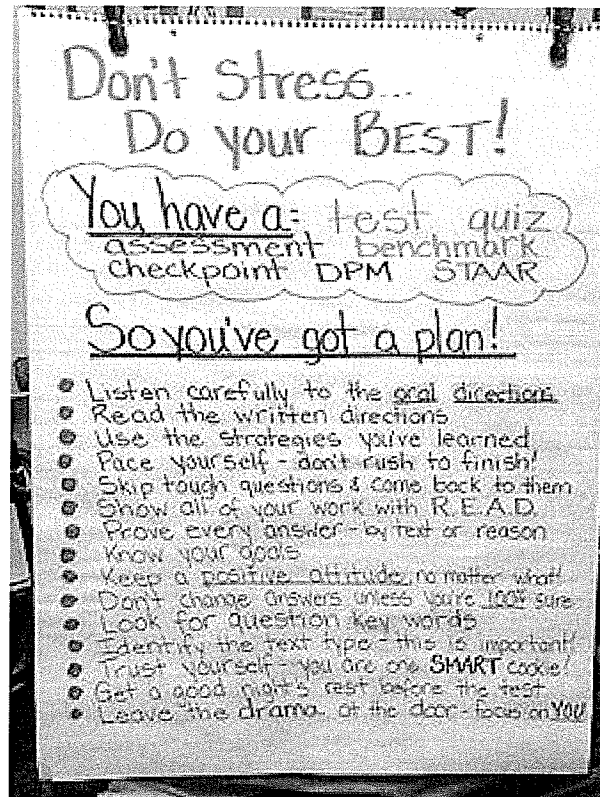 Don't Stress...
Do your BEST!
You have a: test quiz
assessment benchmark
checkpoint DPM STAAR
So you've got a plan!
• Listen carefully to the oral directions.
• Read the written directions
• Use the strategies you've learned
• Pace yourself - don't rush to finish!
• Skip tough questions & come back to them
• Show all of your work with R.E.A.D.
• Prove every answer - by text or reason
• Know your goals
• Keep a positive attitude, no matter what!
• Don't change answers unless you're 100% sure
• Look for question key words
• Identify the text type - this is important!
• Trust yourself - you are one SMART cookie!
• Get a good night's rest before the test
• Leave the drama at the door - focus on YOU